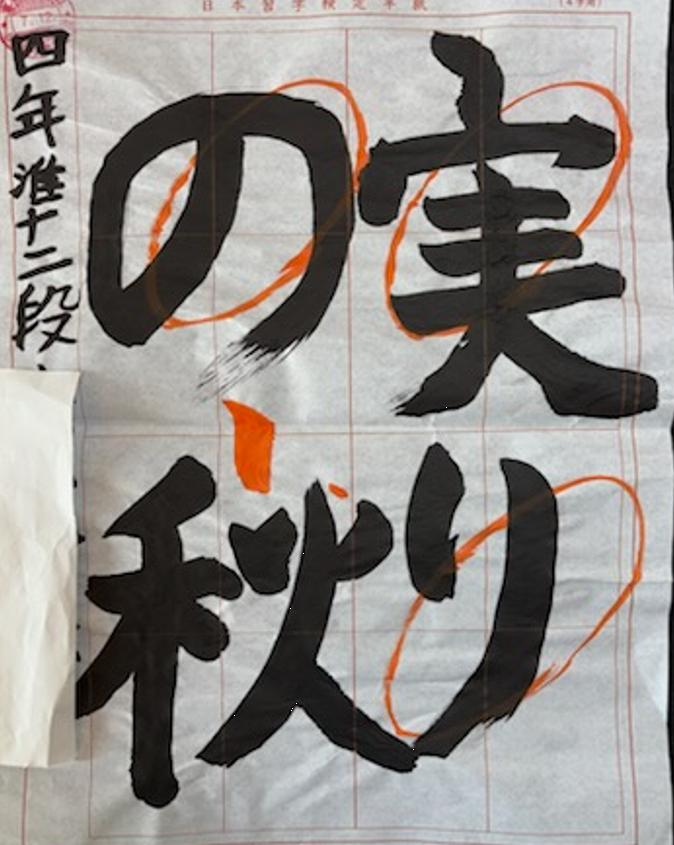 日本習字検定半紙
実り
の秋
四年準十二段